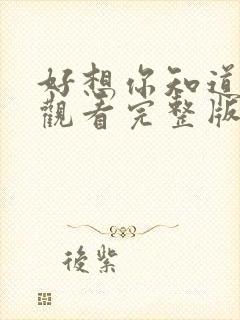 好想你知道
觀看完整版
後紫